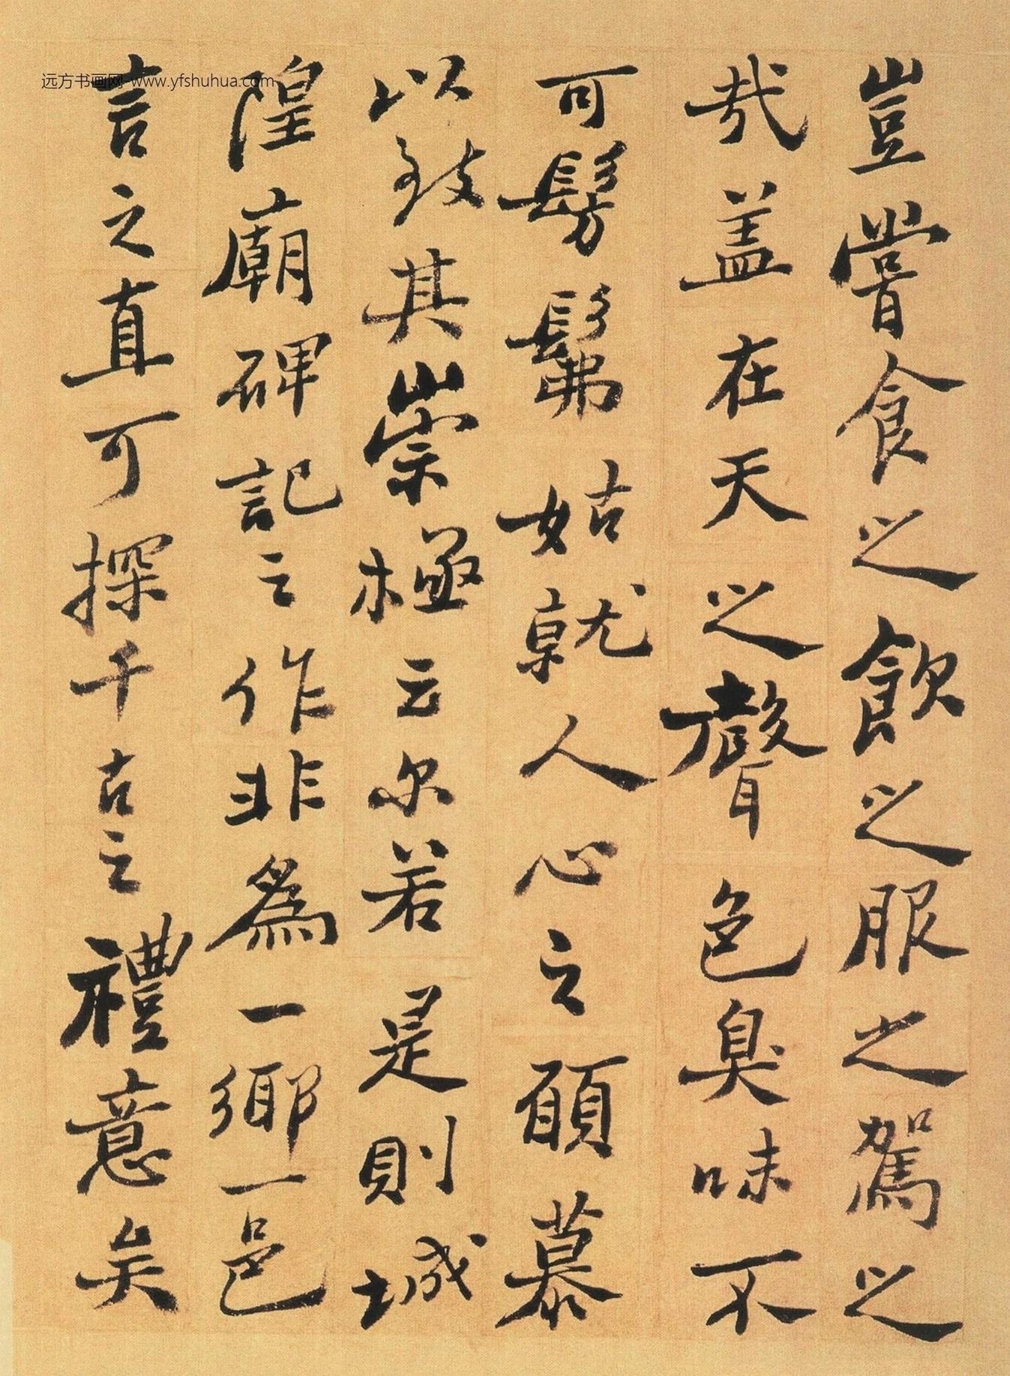 豈嘗食之飲之服之駕之
哉盖在天之聲色臭味不
可髣髴姑就人心之願慕
以致其崇極云尔若是則城
隍廟碑記之作非為一鄉一邑
言之直可探千古之禮意矣
远方书画网 www.yfshuhua.com